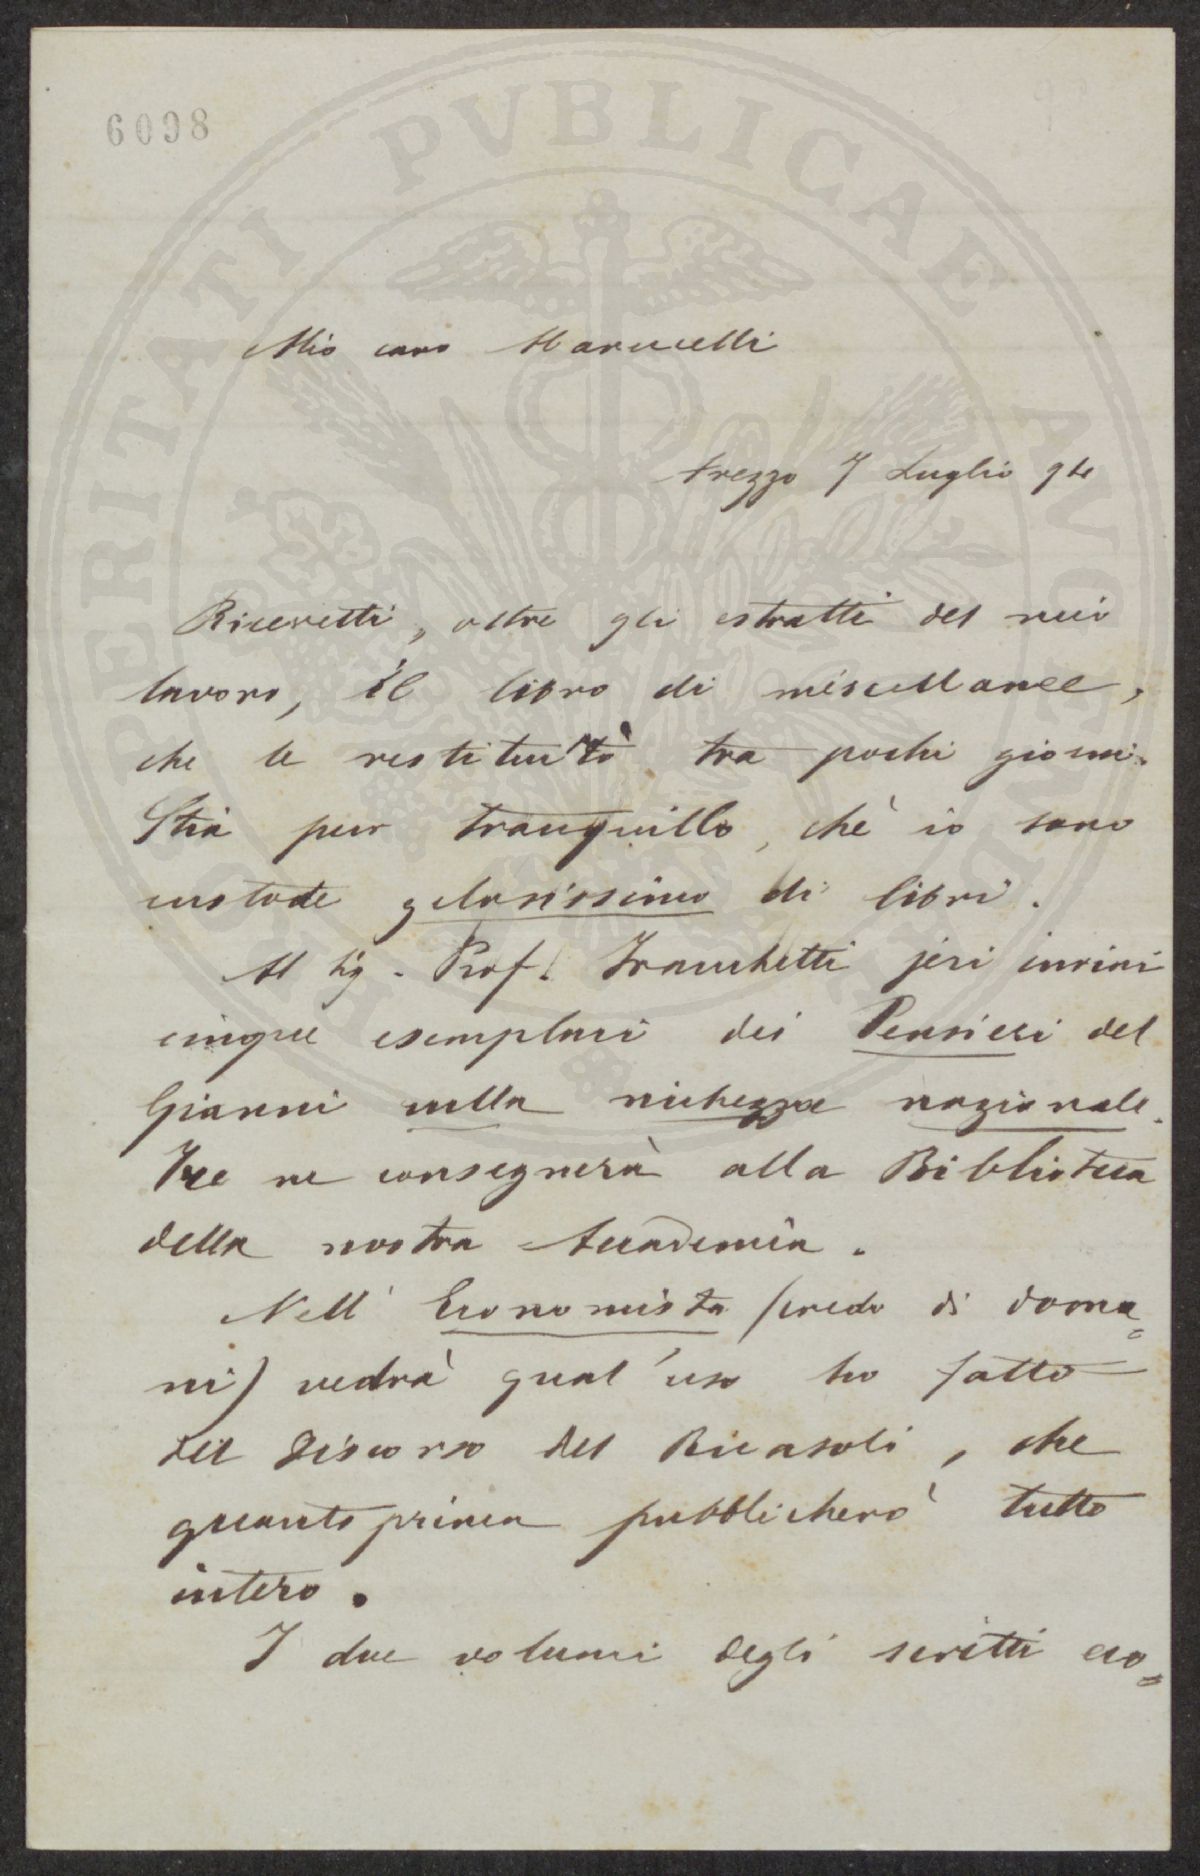 6098
PROSPERITATI PVBLICAE AVGENDAE
Mio caro Marucelli
Arezzo 7 Luglio 94
Ricevetti, oltre gli estratti del mio
lavoro, il libro di miscellanee,
che le restituirò tra pochi giorni.
Stia pur tranquillo, chè io sono
custode gelosissimo di libri.
Al Sig. Prof. Franchetti jeri inviai
cinque esemplari dei Pensieri del
Gianni sulla ricchezza nazionale.
Tre ne consegnerà alla Biblioteca
della nostra Accademia.
Nell'Economista (credo di doma=
ni) vedrà qual'uso ho fatto
del Discorso del Ricasoli, che
quanto prima pubblicherò tutto
intero.
I due volumi degli scritti eco=